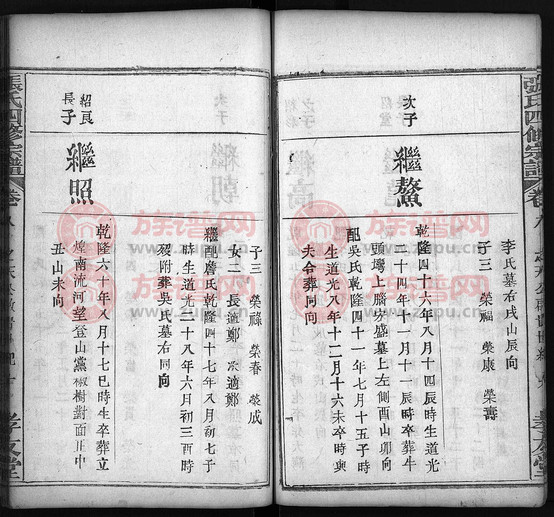 張氏四修宗譜
卷
孝友堂
李氏墓右戌山辰向
子三　榮福　榮康　榮壽
次子
繼鰲
乾隆四十六年八月十四辰時生道光
二十四年十一月十一辰時卒葬牛
頭塆上房安盛墓上左側酉山卯向
配吳氏乾隆四十一年七月十五子時
生道光八年十二月十六未卒時與
夫合葬同向
子三　榮祿　榮春　榮成
女二　長適鄭　次適鄭
紹良
長子
繼照
繼配詹氏乾隆四十七年八月初七子
時生道光二十八年六月初三酉時
歿附葬吳氏墓右同向
乾隆六十年八月十七巳時生卒葬立
煌南流河望登山黨椒樹對面正中
丑山未向
張氏四修宗譜
卷八
孝友堂
族谱网
www.zupu.cn